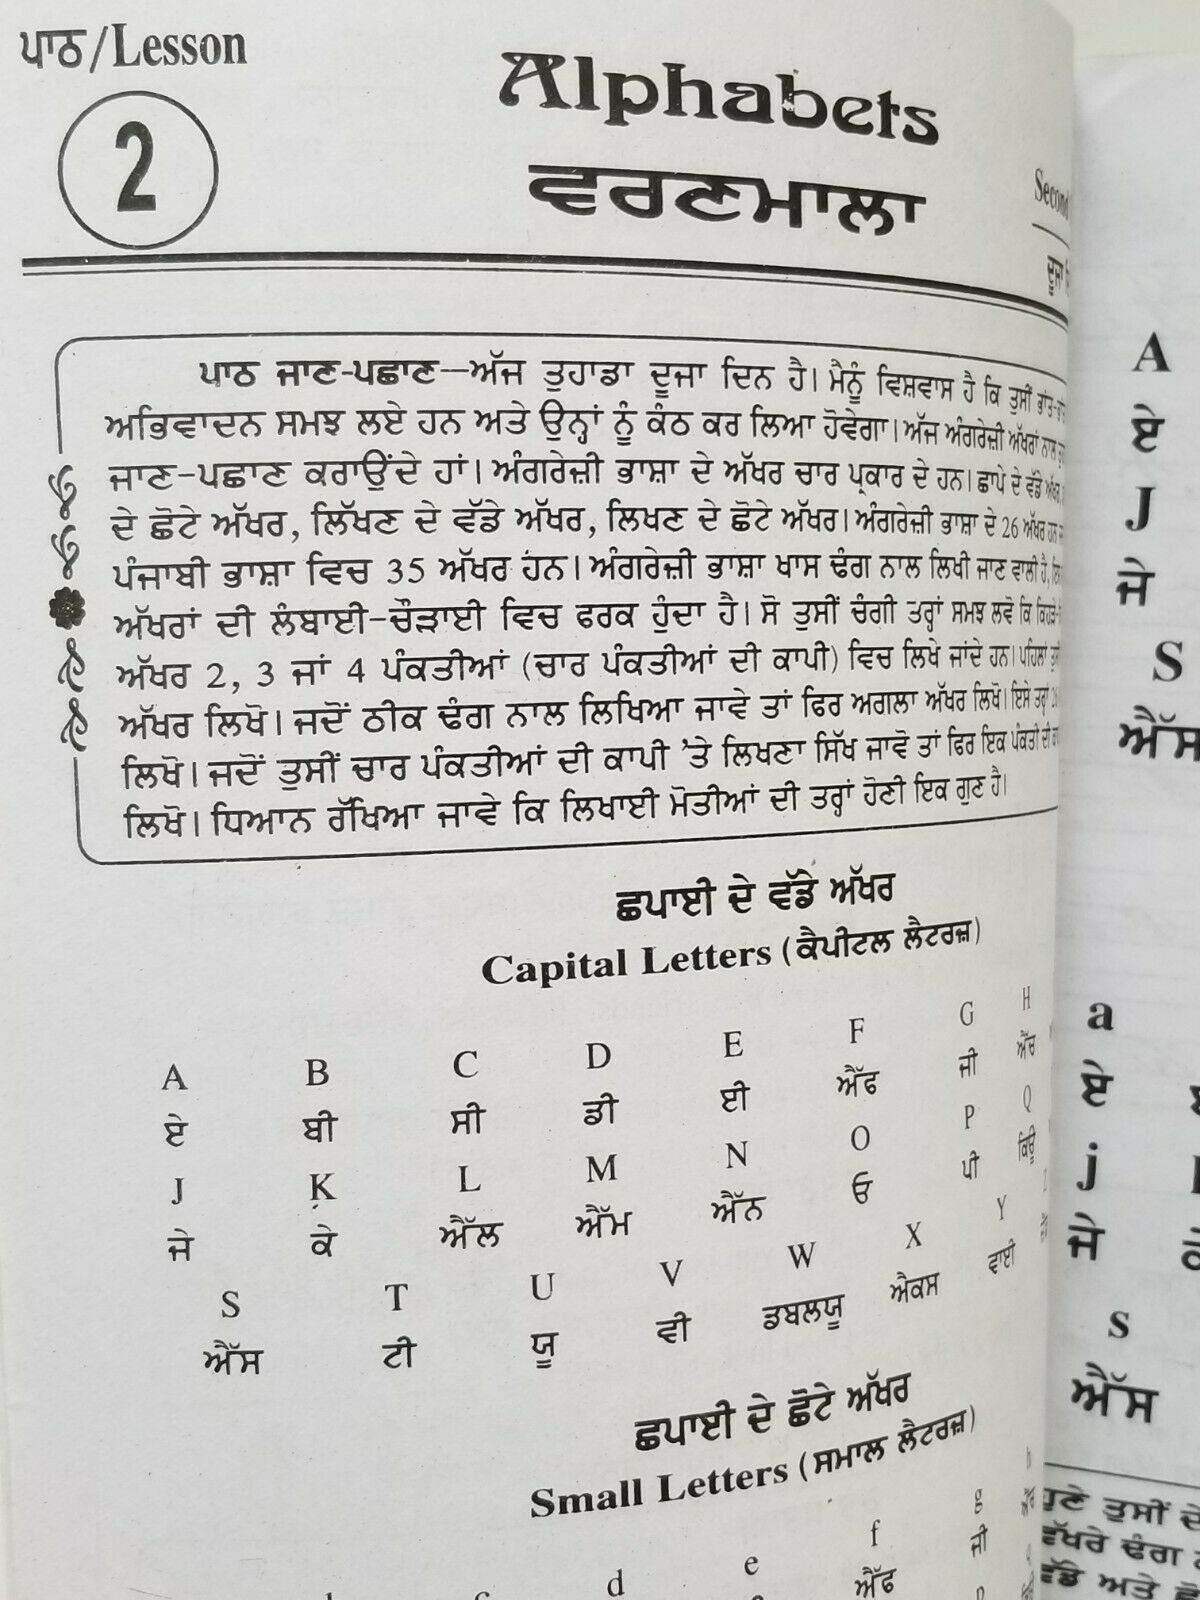 ਪਾਠ/Lesson
2
Alphabets
ਵਰਣਮਾਲਾ
Second
ਦੂਜਾ
ਪਾਠ ਜਾਣ-ਪਛਾਣ—ਅੱਜ ਤੁਹਾਡਾ ਦੂਜਾ ਦਿਨ ਹੈ। ਮੈਨੂੰ ਵਿਸ਼ਵਾਸ ਹੈ ਕਿ ਤੁਸੀਂ
ਅਭਿਵਾਦਨ ਸਮਝ ਲਏ ਹਨ ਅਤੇ ਉਨ੍ਹਾਂ ਨੂੰ ਕੰਠ ਕਰ ਲਿਆ ਹੋਵੇਗਾ। ਅੱਜ ਅੰਗਰੇਜ਼ੀ ਅੱਖਰਾਂ ਨਾਲ
ਜਾਣ-ਪਛਾਣ ਕਰਾਉਂਦੇ ਹਾਂ। ਅੰਗਰੇਜ਼ੀ ਭਾਸ਼ਾ ਦੇ ਅੱਖਰ ਚਾਰ ਪ੍ਰਕਾਰ ਦੇ ਹਨ। ਛਾਪੇ ਦੇ ਵੱਡੇ ਅੱਖਰ,
ਦੇ ਛੋਟੇ ਅੱਖਰ, ਲਿੱਖਣ ਦੇ ਵੱਡੇ ਅੱਖਰ, ਲਿਖਣ ਦੇ ਛੋਟੇ ਅੱਖਰ। ਅੰਗਰੇਜ਼ੀ ਭਾਸ਼ਾ ਦੇ 26 ਅੱਖਰ ਹਨ
ਪੰਜਾਬੀ ਭਾਸ਼ਾ ਵਿਚ 35 ਅੱਖਰ ਹਨ। ਅੰਗਰੇਜ਼ੀ ਭਾਸ਼ਾ ਖਾਸ ਢੰਗ ਨਾਲ ਲਿਖੀ ਜਾਣ ਵਾਲੀ ਹੈ,
ਅੱਖਰਾਂ ਦੀ ਲੰਬਾਈ-ਚੌੜਾਈ ਵਿਚ ਫਰਕ ਹੁੰਦਾ ਹੈ। ਸੋ ਤੁਸੀਂ ਚੰਗੀ ਤਰ੍ਹਾਂ ਸਮਝ ਲਵੋ ਕਿ
ਅੱਖਰ 2, 3 ਜਾਂ 4 ਪੰਕਤੀਆਂ (ਚਾਰ ਪੰਕਤੀਆਂ ਦੀ ਕਾਪੀ) ਵਿਚ ਲਿਖੇ ਜਾਂਦੇ ਹਨ। ਪਹਿਲਾਂ
ਅੱਖਰ ਲਿਖੋ। ਜਦੋਂ ਠੀਕ ਢੰਗ ਨਾਲ ਲਿਖਿਆ ਜਾਵੇ ਤਾਂ ਫਿਰ ਅਗਲਾ ਅੱਖਰ ਲਿਖੋ। ਇਸੇ ਤਰ੍ਹਾਂ
ਲਿਖੋ। ਜਦੋਂ ਤੁਸੀਂ ਚਾਰ ਪੰਕਤੀਆਂ ਦੀ ਕਾਪੀ 'ਤੇ ਲਿਖਣਾ ਸਿੱਖ ਜਾਵੋ ਤਾਂ ਫਿਰ ਇਕ ਪੰਕਤੀ ਦੀ
ਲਿਖੋ। ਧਿਆਨ ਰੱਖਿਆ ਜਾਵੇ ਕਿ ਲਿਖਾਈ ਮੋਤੀਆਂ ਦੀ ਤਰ੍ਹਾਂ ਹੋਣੀ ਇਕ ਗੁਣ ਹੈ।
ਛਪਾਈ ਦੇ ਵੱਡੇ ਅੱਖਰ
Capital Letters (ਕੈਪੀਟਲ ਲੈਟਰਜ਼)
A B C D E F G H
ਏ ਬੀ ਸੀ ਡੀ ਈ ਐੱਫ ਜੀ ਐੱਚ
J K L M N O P Q
ਜੇ ਕੇ ਐੱਲ ਐੱਮ ਐੱਨ ਓ ਪੀ ਕਿਊ
S T U V W X Y
ਐੱਸ ਟੀ ਯੂ ਵੀ ਡਬਲਯੂ ਐਕਸ ਵਾਈ
ਛਪਾਈ ਦੇ ਛੋਟੇ ਅੱਖਰ
Small Letters (ਸਮਾਲ ਲੈਟਰਜ਼)
d e f g h
ਐੱਫ ਜੀ
A
ਏ
J
ਜੇ
S
ਐੱਸ
a
ਏ
j
ਜੇ
s
ਐੱਸ
ਤੁਸੀਂ ਦੇ
ਵੱਖਰੇ ਢੰਗ
ਵੱਡੇ ਅਤੇ